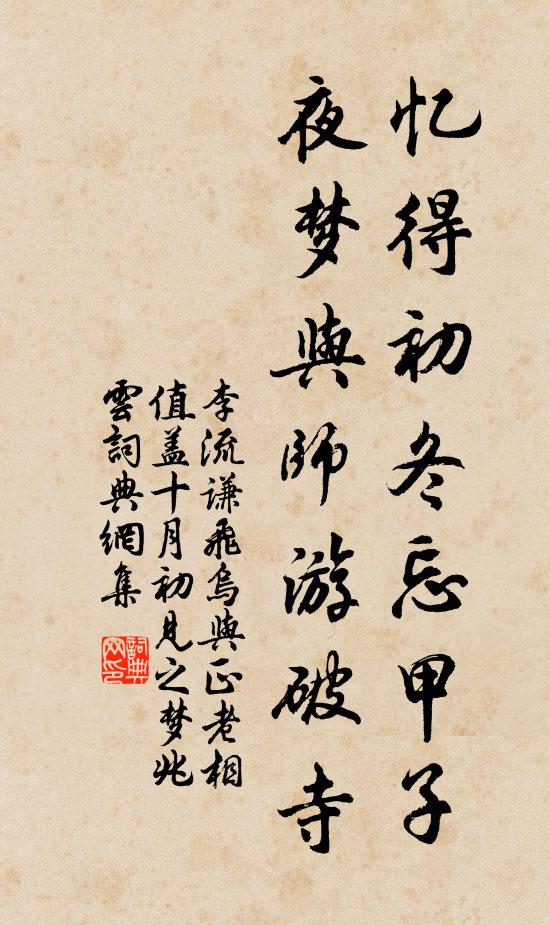 忆得初冬忘甲子
夜梦與師游破寺
李流谦飛烏與正老相
值盖十月初見之梦兆
雲詞典網集
詞典网印